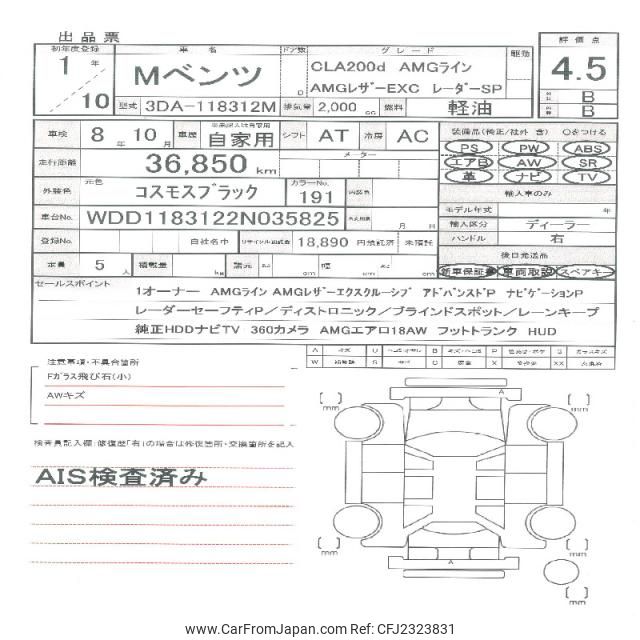 出品票
初年度登録 車名 ドア数 グレード 駆動 評価点
1 年 Mベンツ CLA200d AMGライン 4.5
D AMGレザーEXC レーダーSP
10 型式 3DA-118312M 排気量 2,000 cc 燃料 軽油 B
B
車検 8 年 10 月 車歴 自家用 シフト AT 冷房 AC 装備品(純正/社外 含) Oをつける
PS PW ABS
走行距離 36,850 km メーター エアB AW SR
革 ナビ TV
外装色 元色 コスモスブラック カラーNo. 191 内装色 輸入車のみ
車台No. WDD1183122N035825 月 モデル年式 年
輸入区分 ディーラー
登録No. 自社名中 リサイクル預託金 18,890 円預託済 未預託 ハンドル 右
定員 5 人 積載量 kg 諸元 cm 幅 cm cm 後日発送品
新車保証書 車両取説 スペアキー
セールスポイント 1オーナー AMGライン AMGレザーエクスクルーシブ アドバンスドP ナビゲーションP
レーダーセーフティP/ディストロニック/ブラインドスポット/レーンキープ
純正HDDナビTV 360カメラ AMGエアロ18AW フットトランク HUD
A キズ U B P G ガラスキズ
W S C X XX
注意事項・不具合箇所
Fガラス飛び石(小)
AWキズ
検査員記入欄:修復歴「有」の場合は修復箇所・交換箇所を記入
AIS検査済み
A
mm
mm
A
mm
mm
mm
www.CarFromJapan.com Ref: CFJ2323831